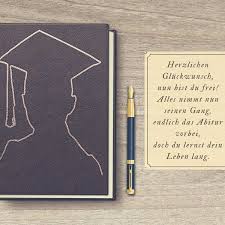 Herzlichen
Glückwunsch,
nun bist du frei!
Alles nimmt nun
seinen Gang,
endlich das Abitur
vorbei,
doch du lernst dein
Leben lang.